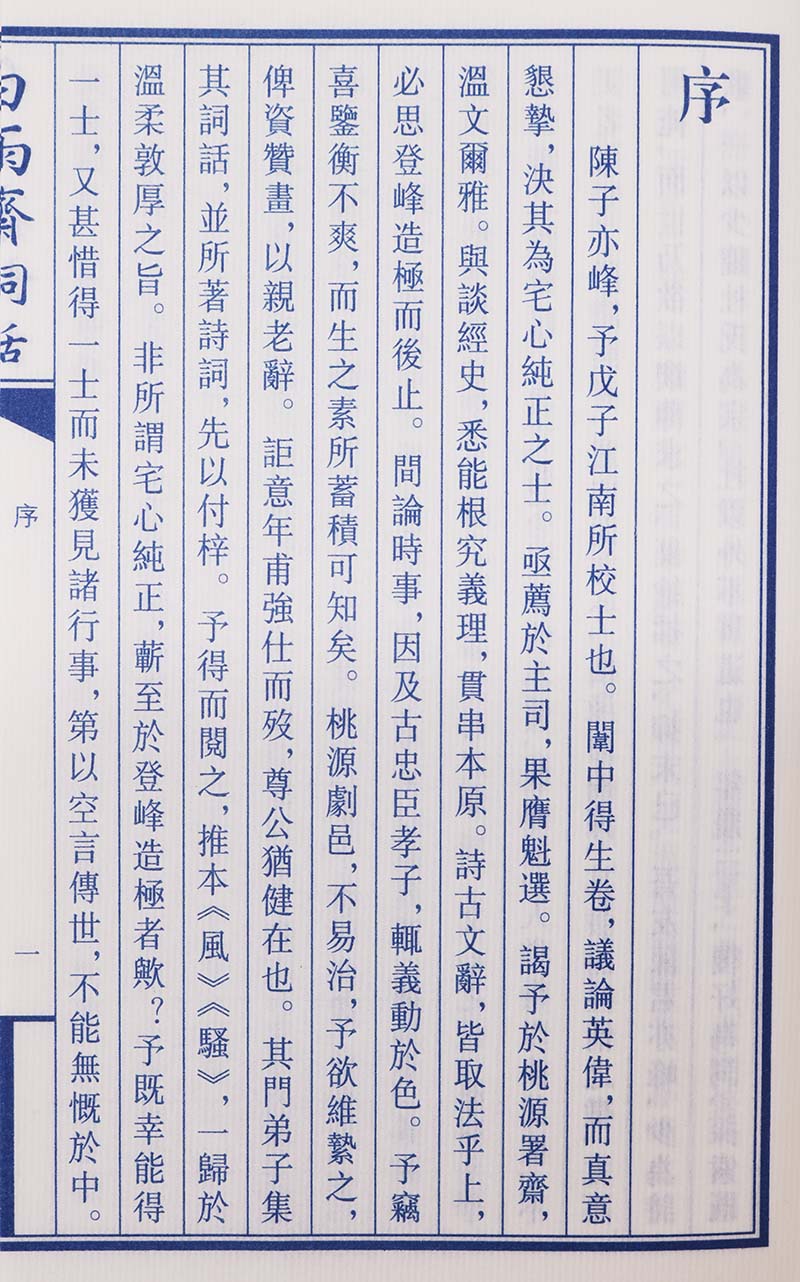 序
陳子亦峰，予戊子江南所校士也。闈中得生卷，議論英偉，而真意
懇摯，決其為宅心純正之士。亟薦於主司，果膺魁選。謁予於桃源署齋，
溫文爾雅。與談經史，悉能根究義理，貫串本原。詩古文辭，皆取法乎上，
必思登峰造極而後止。間論時事，因及古忠臣孝子，輒義動於色。予竊
喜鑒衡不爽，而生之素所蓄積可知矣。桃源劇邑，不易治，予欲維縶之，
俾資贊畫，以親老辭。詎意年甫強仕而歿，尊公猶健在也。其門弟子集
其詞話，並所著詩詞，先以付梓。予得而閱之，推本《風》《騷》，一歸於
溫柔敦厚之旨。非所謂宅心純正，蘄至於登峰造極者歟？予既幸能得
一士，又甚惜得一士而未獲見諸行事，第以空言傳世，不能無慨於中。
白雨齋詞話
序
一